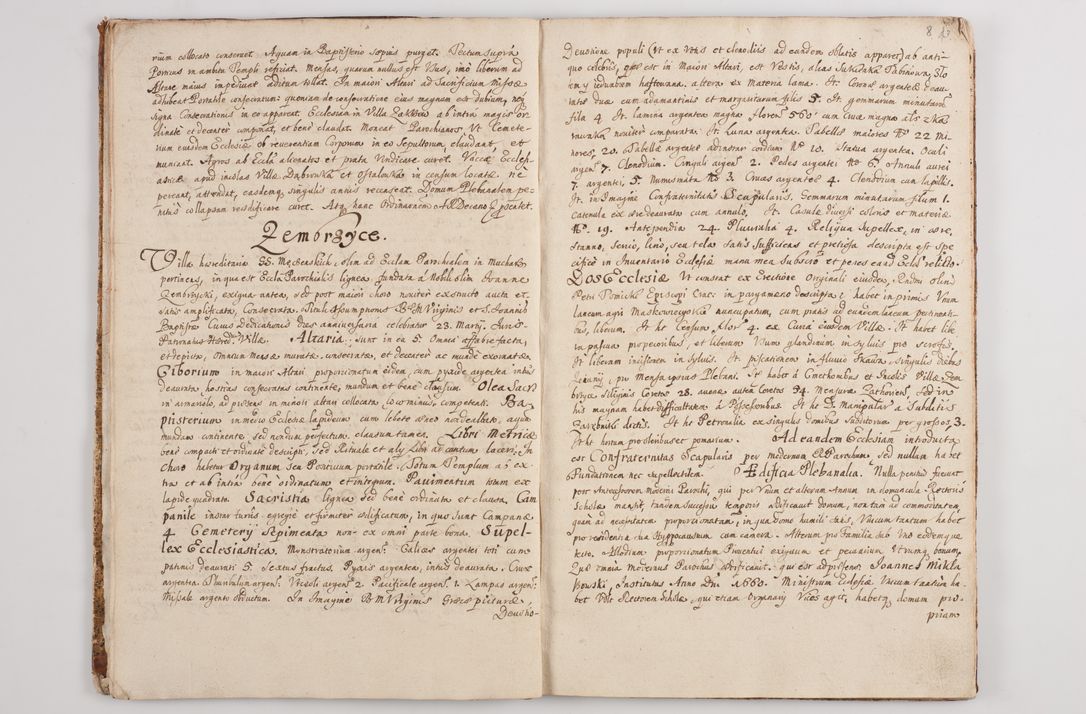 rium collocato conservet. Aquam in Baptisterio sæpius purget. Tectum supra
Porticus in ambitu Templi reficiat. Mensas, quarum nullus est Usus, imo liberum ad
Altare maius impediunt aditum tollat. In maiori Altari ad Sacrificium Missæ
adhibeat Portatile consecratum: quoniam de consecratione eius magnum est dubium, neq
signa Consecrationis in eo apparent. Ecclesiam in Villa ab intra magis or
dinate et decenter componat, et bene claudat. Moneat Parochianos, Ut Cemete-
rium eiusdem Ecclesiæ ob reverentiam Corporum in eo Sepultorum claudant, et
muniant. Agros ab Eccla alienatos et prata Vindicare curet. Vaccæ Eccles-
iasticæ apud incolas Villæ Dąbrowka et in censum locatæ ne
pereant, attendat, easdemq singulis annis recenseat. Domum Plebanalem pe-
nitus collapsam reædificare curet. Atq hanc Ordinationem
Zembrzyce.
Villa hæreditaria olim ad Eccliam Parochialem in Muchacz
pertinens, in qua est Eccla Parochialis lignea, fundata a Nobili olim Ioanne
Zembrzycki, exigua antea, sed post maiori choro noviter exstructo aucta et
satis amplificata, Consecrata. Tituli Assumptionis B. M Virginis et S. Joannis
Baptistæ Cuius dedicationis dies anniversaria celebratur 23. Martij. Juris
Patronatus Hæred. Villæ. Altaria: sunt in ea 5. Omnia affabre facta,
et depicta, Omnium Mensæ muratæ, consecratæ, et decenter ac munde exornatæ.
Ciborium in maiori Altari proportionatum eidem, cum pyxide argentea intus
deaurata hostias consecratas continente, mundum et bene clausum. Olea Sacra
in armariolo, ad præsens in minori altari collocata loco minus competenti. Ba-
ptisterium in medio Ecclesiæ lapideum cum lebete æreo non deallato, aquam
mundam continente, sed nondum perfectum, clausum tamen. Libri Metricæ
bene compacti et ordinate descripti, sed Rituale et alij Libri ad cantum laceri. In
Choro habetur Organum seu Positivum portatile. Totum Templum ab ex-
tra et ab intra bene ordinatum et integrum. Pavimentum totum ex
lapide quadrato. Sacristia lignea sed bene ordinata et clausa. Cam
panile instar turris egregie et firmiter ædificatum, in quo sunt Campanæ
4. Cemeterij Sepimenta non ex omni parte bona. Supel-
lex Ecclesiastica. Monstratorium argen: Calices argentei toti cum
patenis deaurati 5. Sextus fractus. Pyxis argentea, intus deaurata. Crux
argentea. Thuribulum argen: Urceoli argen: 2. Pacificale argen: 1. Lampas argen:
Missale argento obductum. In Imagine B M Virginis Græcæ picturæ,
Devotio-
8
Devotione populi (Ut ex Votis et clenodiis ad eandem oblatis apparet) ab anti-
quo celebris, quæ est in Maiori Altari, est Vestis, alias Sukienka Tabinowa, Zło
tem y iedwabiem haftowana, altera ex materia lama. It. Coronæ argenteæ deau-
ratæ duæ cum adamantinis et margaritarum filis 5. It. gemmarum minutarum
fila 4. It. lamina argentea magna floren 560. cum Cruce magna
noviter comparata. It. Lunæ argentea. Tabellæ maiores No 22 Mi
nores, 20. Tabellæ argenteæ ad instar cordium No 10. Statua argentea. Oculi
argen 7. Clenodium. Cinguli argen: 2. Pedes argentei No 6. Annuli aurei
7. argentei, 5. Numismata No 3. Cruces argenteæ 4. Clenodium cum lapillis.
It. in Imagine Confraternitatis Scapularis. Gemmarum minutarum filum 1.
Catenula ex ære deaurata cum annulo. It. Casulæ diversi coloris et materiæ
No. 19. Antependia 24. Pluvialia 4. Reliqua Supellex, in ære,
Stanno, Serico, lino, seu tela satis sufficiens et pretiosa descripta est spe
cifice in Inventario Ecclesiæ manu mea subscripto et penes eand Eccla relicto.
Dos Ecclesiæ Ut constat ex Erectione Originali eiusdem, Rndmi olim
Petri Tomicki Episcopi Crac: in pargameno descripta: habet in primis Unum
Laneum agri Maskowiczowski nuncupatum, cum pratis ad eundem laneum pertinenti-
bus, liberum. It. ht Censum flor 4. ex Curia eiusdem Villæ. It. habet libe
ra pascua pro pecoribus, et liberum Usum glandium in Sylvis pro scrofis.
It liberam incisionem in sylvis. It. piscationem in fluvio Skawa singulis diebus
pro Mensa ipsius Plebani. It. habet á Cmethonibus et Incolis Villæ Zem
brzyce Siliginis Coretos 28. avenæ autem Coretos 34. Mensuræ Zathoriens, sed in
his magnam habet difficultatem á Possessoribus. It. ht Manipular á Subditis
dictis. It. ht Petronalia ex singulis domibus Subditorum per grossos 3.
It ht hortum pro oleribus et pomarium. Ad eandem Ecclesiam introducta
est Confraternitas Scapularis per modernum R Parochum. Sed nullam habet
Fundationem nec supellectilem. Ædificia Plebanalia. Nulla penitus fuerunt
post Antecessorem Moderni Parochi, qui per Unum et alterum Annum in domuncula Rectoris
Scholæ mansit, tandem successu temporis ædificavit domum, non tam ad commoditatem,
quam ad necessitatem proportionatam, in qua Domo humili satis, Unicum tantum habet
pro residentia sua Hypocaustum cum camera. Alterum pro Familia sub Uno eodemque
tecto. Allodium proportionatum Proventui exiguum et pecuarium Utrumq bonum,
Quæ omnia Modernus Parochus ædificavit. qui est ad præsens Ioannes Mikla
szowski, Institutus Anno Dni 1660. Ministrum Ecclesiæ Unicum tantum ha-
bet Vole Rectorem Scholæ, qui etiam Organarij Vices agit, habetq domum pro-
priam